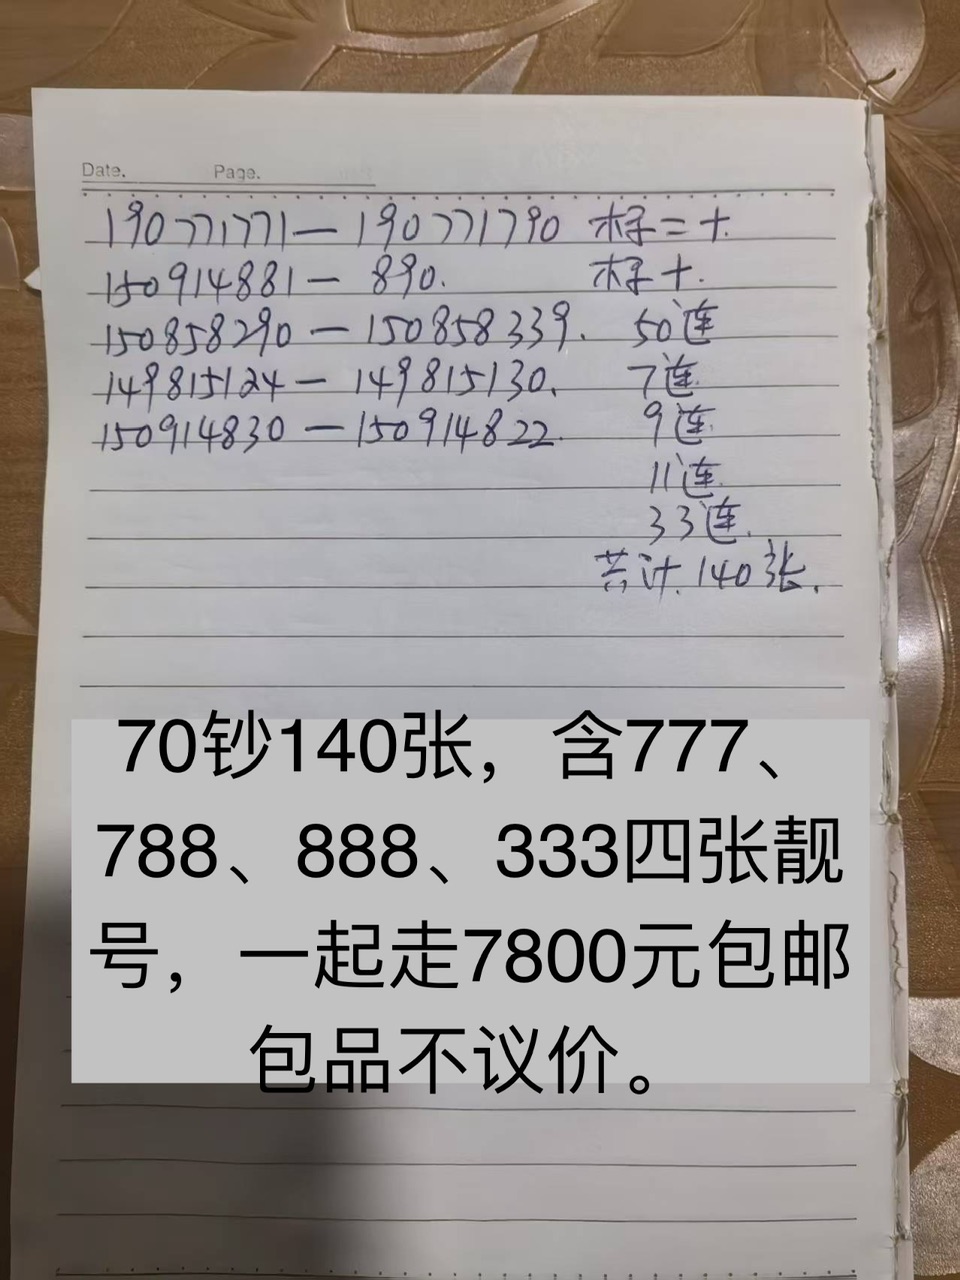 Date. Page.
190771771— 190771790 标二十.
150914881— 890. 标十.
150858290 — 150858339. 50连
149815124— 149815130. 7连
150914830 — 150914822 9连
11连
33连.
共计.140张.
70钞140张，含777、
788、888、333四张靓
号，一起走7800元包邮
包品不议价。